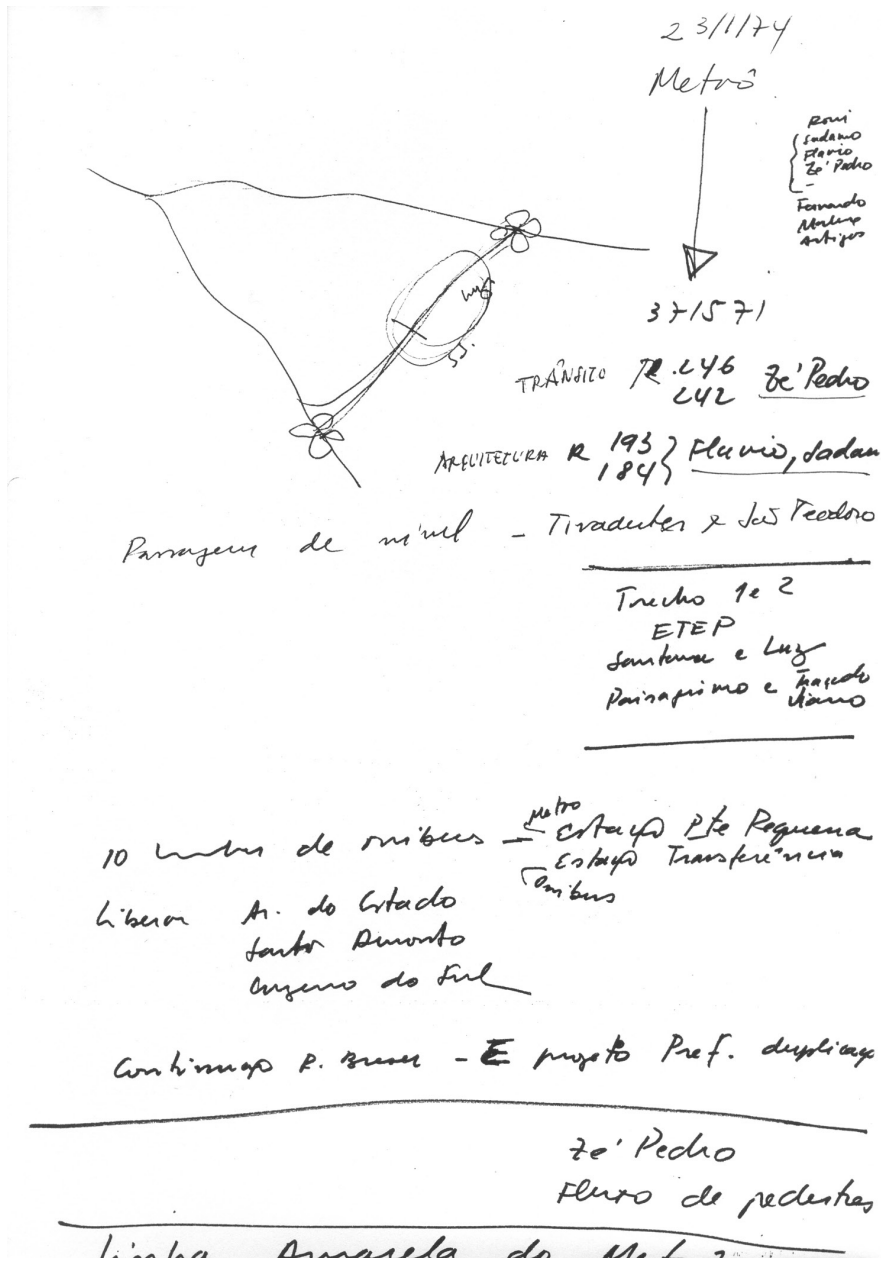 23/1/74
Metrô
Roni
Sadamo
Flavio
Zé Pedro
-
Fernando
Marlene
Artigas
Luz
371571
TRÂNSITO R.246
242 Zé Pedro
ARQUITETURA R 193
184 } Flavio, Sadam
Passagem de nível - Tiradentes e João Teodoro
Trecho 1 e 2
ETEP
Santana e Luz
Paisagismo e Traçado
viario
10 linhas de onibus - Metro Estação Pte Pequena
Estação Transferência
Onibus
Liberar Av. do Estado
Santos Dumont
Cruzeiro do Sul
Continuação R. Bresser - E projeto Pref. duplicaçã
Zé Pedro
Fluxo de pedestres
Linha Amarela do Met